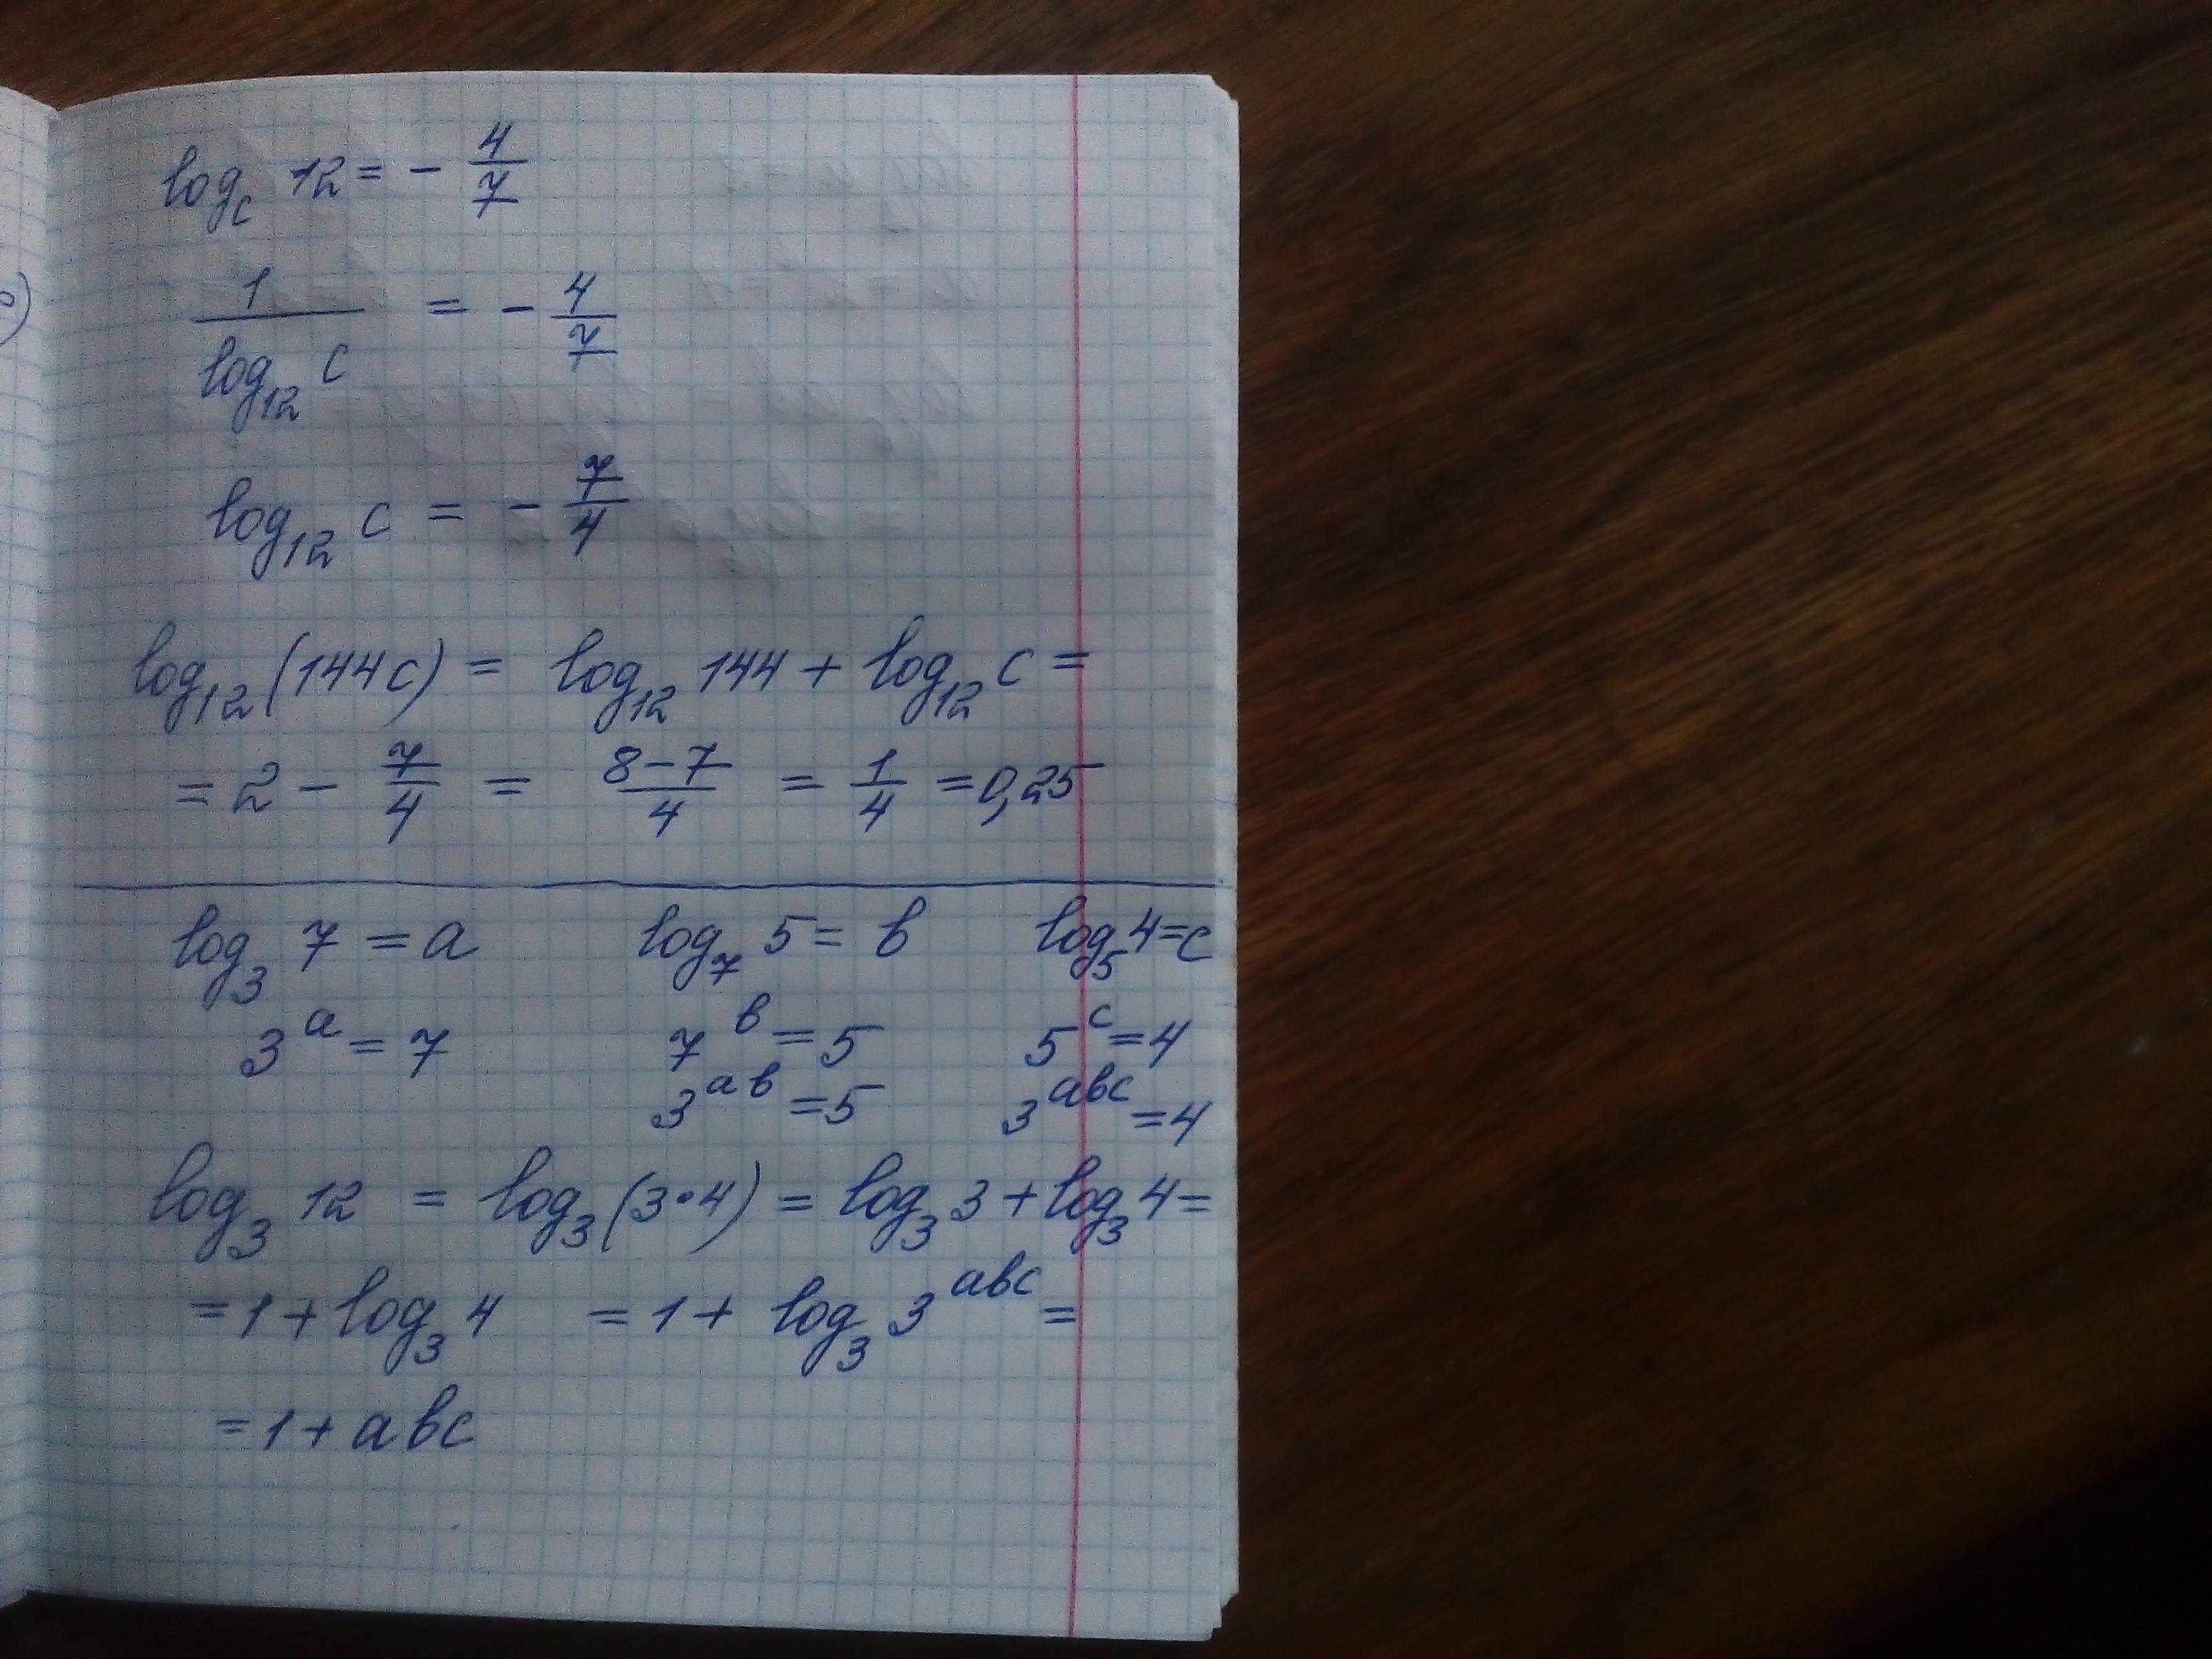 log_c 12 = - 4/7
1/log_12 c = - 4/7
log_12 c = - 7/4
log_12 (144c) = log_12 144 + log_12 c =
= 2 - 7/4 = 8-7/4 = 1/4 = 0,25
log_3 7 = a log_7 5 = b log_5 4 = c
3^a = 7 7^b = 5 5^c = 4
3^ab = 5 3^abc = 4
log_3 12 = log_3 (3·4) = log_3 3 + log_3 4 =
= 1 + log_3 4 = 1 + log_3 3^abc =
= 1 + abc